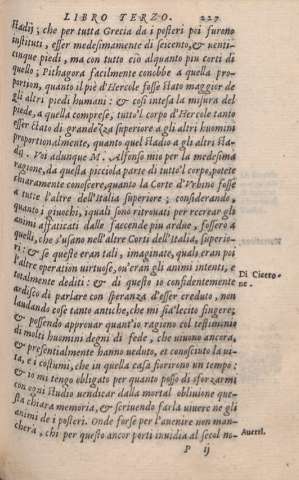 LIBRO TERZO. 227
stadij; che per tutta Grecia da i posteri poi furono
instituti, esser medesimamente di seicento, & uenti-
cinque piedi, ma con tutto ciò alquanto piu corti di
quello; Pithagora facilmente conobbe a quella pro-
portion, quanto il piè d'Hercole fosse stato maggior de
gli altri piedi humani: & cosi intesa la misura del
piede, a quella comprese, tutto'l corpo d'Hercole tanto
esser stato di grandezza superiore a gli altri huomini
proportionalmente, quanto quel stadio a gli altri sta-
dij. Voi adunque M. Alfonso mio per la medesima
ragione, da questa picciola parte di tutto'l corpo, potete
chiaramente conoscere, quanto la Corte d'Vrbino fosse
a tutte l'altre dell'Italia superiore; considerando,
quanto i giuochi, i quali sono ritrouati per recrear gli
animi affaticati dalle faccende piu ardue, fossero a
quelli, che s'usano nell'altre Corti dell'Italia, superio-
ri: & se queste eran tali, imaginate, quali eran poi
l'altre operation uirtuose, ou'eran gli animi intenti, e
totalmente dediti: & di questo io confidentemente
ardisco di parlare con speranza d'esser creduto, non
laudando cose tanto antiche, che mi sia lecito fingere;
& possendo approuar quant'io ragiono col testimonio
di molti huomini degni di fede, che uiuono ancora,
& presentialmente hanno ueduto, et conosciuto la ui-
ta, e i costumi, che in quella casa fiorirono un tempo:
& io mi tengo obligato per quanto posso di sforzarmi
con ogni studio uendicar dalla mortal obliuione que-
sta chiara memoria, & scriuendo farla uiuere ne gli
animi de i posteri. Onde forse per l'auenire non man-
cherà, chi per questo ancor porti inuidia al secol no-
P ij
Di Cicero-
ne.
Auertl.